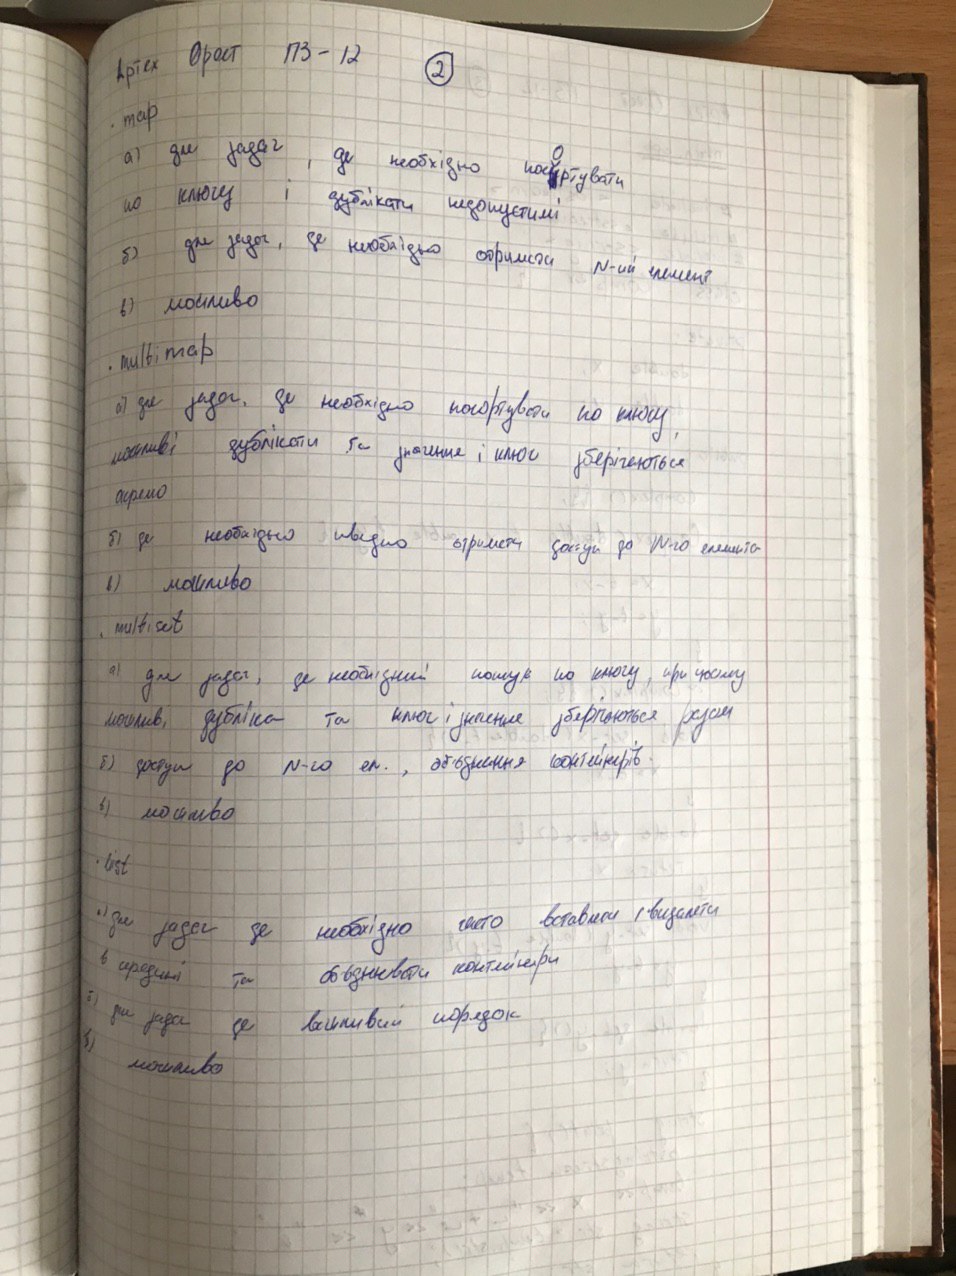 Орест ПЗ-12 2
· map
а) для задач, де необхідно посортувати
по ключу і дублікати недопустимі
б) для задач, де необхідно отримати N-ий елемент
в) можливо
· multimap
а) для задач, де необхідно посортувати по ключу,
можливі дублікати та значення і ключ зберігаються
окремо
б) де необхідно швидко отримати доступ до N-го елемента
в) можливо
· multiset
а) для задач, де необхідний пошук по ключу, при чому
можливі дубліка та ключ і значення зберігаються разом
б) доступ до N-го ел., об'єднання контейнерів
в) можливо
· list
а) для задач де необхідно часто вставляти і видаляти
в середині та об'єднювати контейнери
б) для задач де важливий порядок
в) можливо